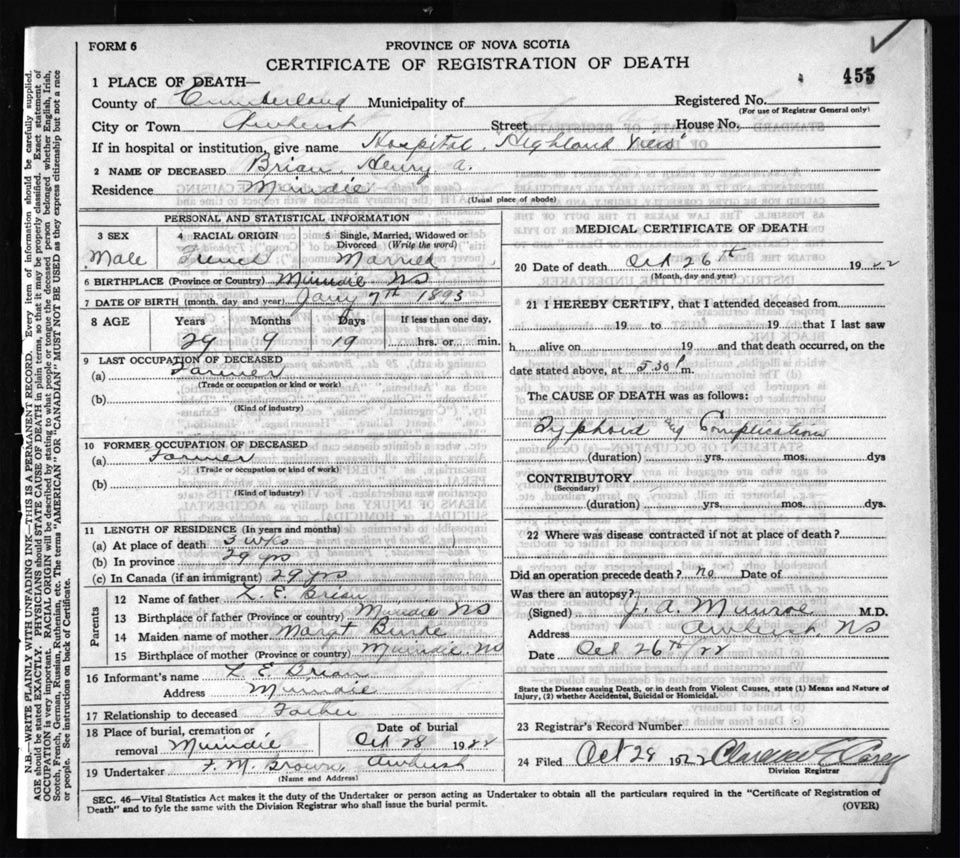 FORM 6
PROVINCE OF NOVA SCOTIA
CERTIFICATE OF REGISTRATION OF DEATH
455
1 PLACE OF DEATH—
County of Cumberland Municipality of Registered No.
(For use of Registrar General only)
City or Town Amherst Street House No.
If in hospital or institution, give name Hospital, Highland View
2 NAME OF DECEASED Brian, Henry A.
Residence
(Usual place of abode)
PERSONAL AND STATISTICAL INFORMATION
3 SEX 4 RACIAL ORIGIN 5 Single, Married, Widowed or Divorced (Write the word)
Male French Married
6 BIRTHPLACE (Province or Country) NS
7 DATE OF BIRTH (month, day and year) Jany 7th 1893
8 AGE Years Months Days If less than one day,
29 9 19 hrs. or min.
9 LAST OCCUPATION OF DECEASED
(a) Farmer
(Trade or occupation or kind or work)
(b)
(Kind of industry)
10 FORMER OCCUPATION OF DECEASED
(a) Farmer
(Trade or occupation or kind of work)
(b)
(Kind of industry)
11 LENGTH OF RESIDENCE (In years and months)
(a) At place of death 3 wks
(b) In province 29 yrs
(c) In Canada (if an immigrant) 29 yrs
Parents
12 Name of father L. E. Brian
13 Birthplace of father (Province or country) NS
14 Maiden name of mother Margt Burke
15 Birthplace of mother (Province or country) NS
16 Informant's name L E Brian
Address
17 Relationship to deceased Father
18 Place of burial, cremation or removal Date of burial
Oct 28 1922
19 Undertaker F. M. Brown, Amherst
(Name and Address)
MEDICAL CERTIFICATE OF DEATH
20 Date of death Oct 26th 1922
(Month, day and year)
21 I HEREBY CERTIFY, that I attended deceased from
19 to 19 that I last saw
h alive on 19 and that death occurred, on the
date stated above, at 5.30 P m.
The CAUSE OF DEATH was as follows:
Typhoid Complication
(duration) yrs. mos. dys
CONTRIBUTORY
(Secondary)
(duration) yrs. mos. dys.
22 Where was disease contracted if not at place of death?
Did an operation precede death? no Date of
Was there an autopsy?
(Signed) J. A. Munroe M.D.
Address Amherst, NS
Date Oct 26th/22
State the Disease causing Death, or in death from Violent Causes, state (1) Means and Nature of
Injury, (2) whether Accidental, Suicidal or Homicidal.
23 Registrar's Record Number
24 Filed Oct 28 1922 Clarence E Casey
Division Registrar
SEC. 46—Vital Statistics Act makes it the duty of the Undertaker or person acting as Undertaker to obtain all the particulars required in the "Certificate of Registration of
Death" and to fyle the same with the Division Registrar who shall issue the burial permit.
(OVER)
N.B.—WRITE PLAINLY WITH UNFADING INK—THIS IS A PERMANENT RECORD. Every item of information should be carefully supplied.
AGE should be stated EXACTLY. PHYSICIANS should STATE CAUSE OF DEATH in plain terms, so that it may be properly classified. Exact statement of
OCCUPATION is very important. RACIAL ORIGIN will be described by stating to what people or tongue the deceased person belonged whether English, Irish,
Scotch, French, German, Russian, Ruthenian, etc. The terms "AMERICAN" OR "CANADIAN" MUST NOT BE USED as they express citizenship but not a race
or people. See instructions on back of Certificate.